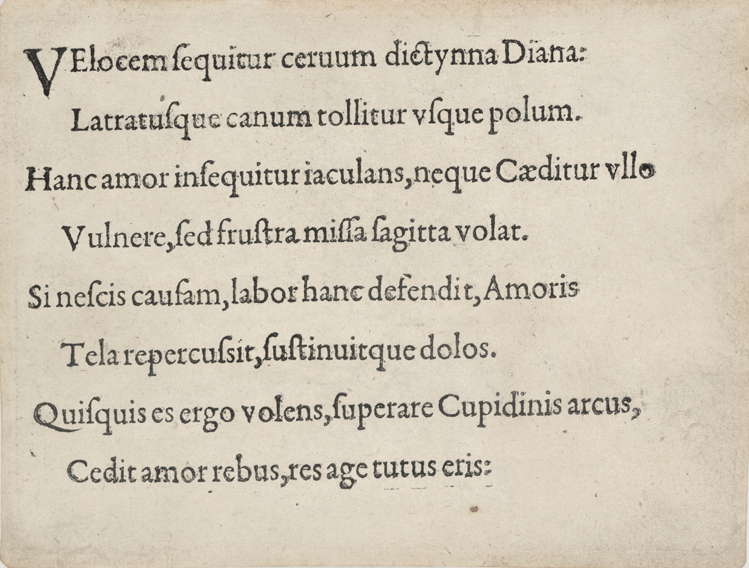 VElocem ſequitur ceruum dictynna Diana:
Latratuſque canum tollitur vſque polum.
Hanc amor inſequitur iaculans, neque Cæditur vllo
Vulnere, ſed fruſtra miſſa ſagitta volat.
Si neſcis cauſam, labor hanc defendit, Amoris
Tela repercuſsit, ſuſtinuitque dolos.
Quiſquis es ergo volens, ſuperare Cupidinis arcus,
Cedit amor rebus, res age tutus eris: